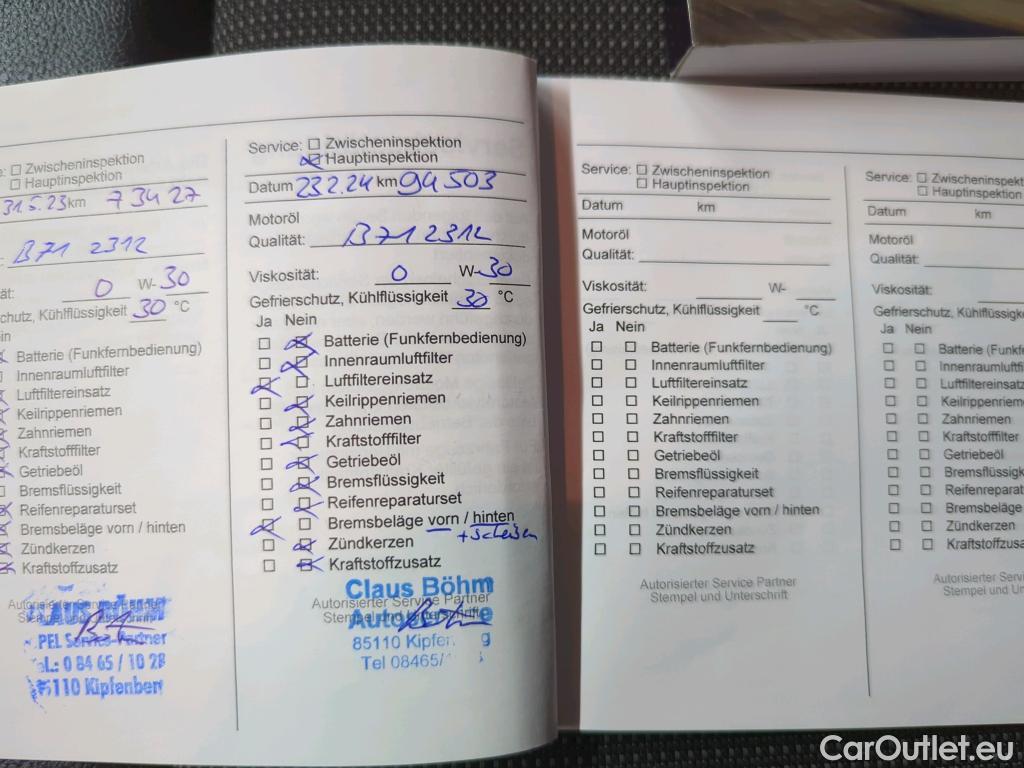 Zwischeninspektion
Hauptinspektion
31.5.23 km 73427
B71 2312
0 W-30
Kühlflüssigkeit 30 °C
Batterie (Funkfernbedienung)
Innenraumluftfilter
Luftfiltereinsatz
Keilrippenriemen
Zahnriemen
Kraftstofffilter
Getriebeöl
Bremsflüssigkeit
Reifenreparaturset
Bremsbeläge vorn / hinten
Zündkerzen
Kraftstoffzusatz
Service-Partner
0 84 65 / 10 28
Service: Zwischeninspektion
Hauptinspektion
Datum 23.2.24 km 94503
Motoröl
Qualität: B71 2312
Viskosität: 0 W-30
Gefrierschutz, Kühlflüssigkeit 30 °C
Ja Nein
Batterie (Funkfernbedienung)
Innenraumluftfilter
Luftfiltereinsatz
Keilrippenriemen
Zahnriemen
Kraftstofffilter
Getriebeöl
Bremsflüssigkeit
Reifenreparaturset
Bremsbeläge vorn / hinten
Zündkerzen
Kraftstoffzusatz
Claus Böhm
Autorisierter Service Partner
85110
Tel 08465/
Service: Zwischeninspektion
Hauptinspektion
Datum km
Motoröl
Qualität:
Viskosität: W-
Gefrierschutz, Kühlflüssigkeit °C
Ja Nein
Batterie (Funkfernbedienung)
Innenraumluftfilter
Luftfiltereinsatz
Keilrippenriemen
Zahnriemen
Kraftstofffilter
Getriebeöl
Bremsflüssigkeit
Reifenreparaturset
Bremsbeläge vorn / hinten
Zündkerzen
Kraftstoffzusatz
Autorisierter Service Partner
Stempel und Unterschrift
Service: Zwischeninspekt
Hauptinspektion
Datum km
Motoröl
Qualität:
Viskosität:
Gefrierschutz, Kühlflüssigke
Ja Nein
Batterie (Funkf
Innenraumluftfi
Luftfiltereinsatz
Keilrippenrieme
Zahnriemen
Kraftstofffilter
Getriebeöl
Bremsflüssigke
Reifenreparatur
Bremsbeläge
Zündkerzen
Kraftstoffzusat
Autorisierter Servic
Stempel und Un
CarOutlet.eu